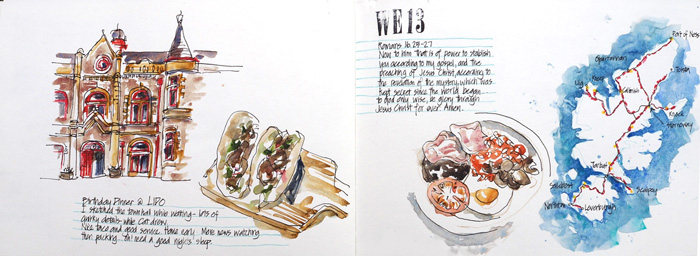 Birthday Dinner @ LIDO
I sketched the town hall while waiting - lots of
quirky details while Cat drew.
Nice taco and good service. Home early. More news watching
then packing. Ah! need a good nights' sleep.
WE13
Romans 16:25-27
Now to him that is of power to stablish
you according to my gospel, and the
preaching of Jesus Christ, according to
the revelation of the mystery, which was
kept secret since the world began
to God only wise, be glory through
Jesus Christ for ever. Amen.
Port of Ness
Tolsta
Uig
Callanish
Stornoway
Tarbet
Scalpay
Northton
Leverburgh